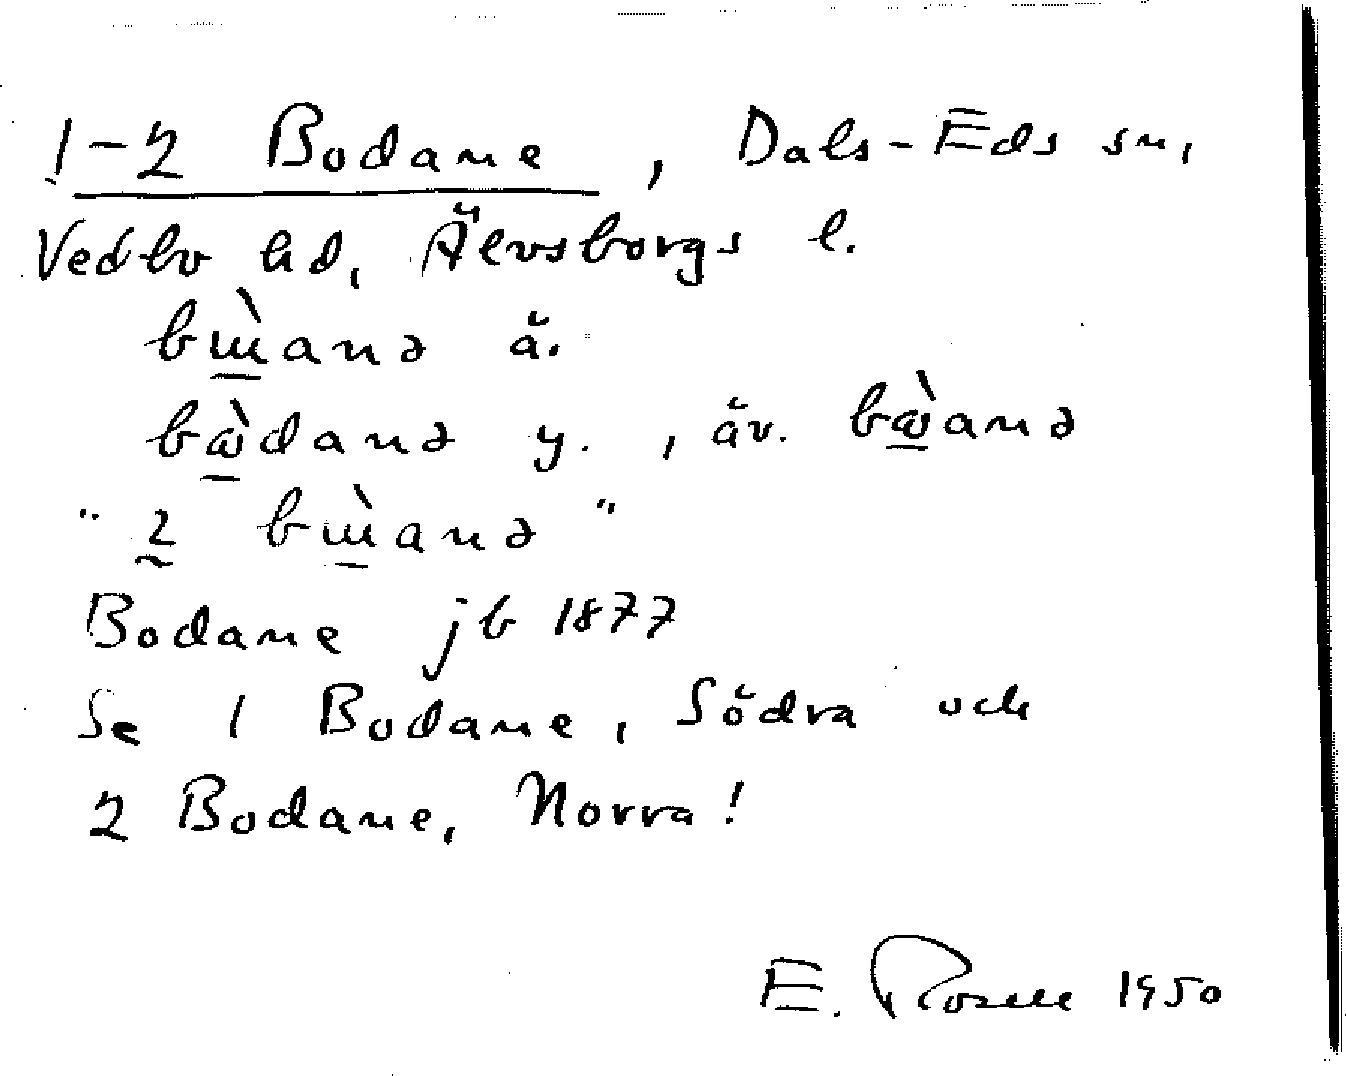 1-2 Bodane, Dals-Eds sn,
Vedbo hd, Älvsborgs l.
bɯ̀anə ä.
bὼdanə y., äv. bὼanə
"2 bɯ̀anə"
Bodane jb 1877
Se 1 Bodane, Södra och
2 Bodane, Norra!
E. Rosell 1950